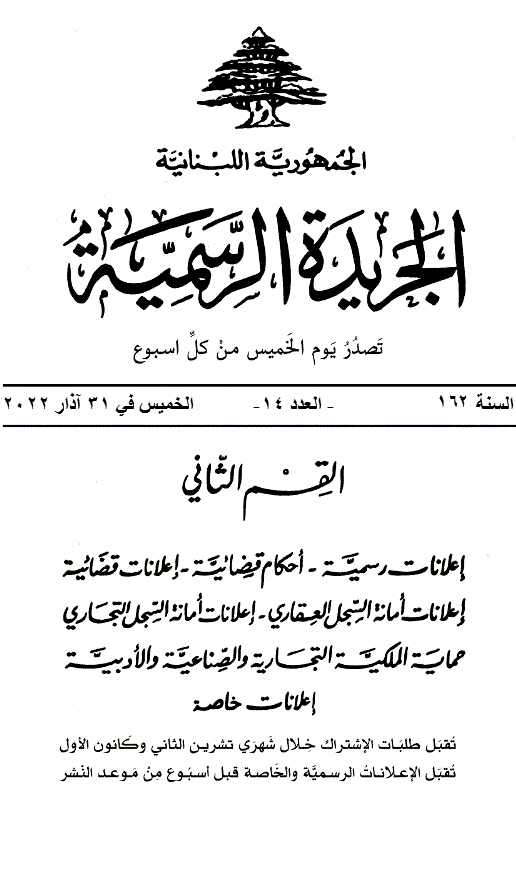 الجُمهُوريَّة اللبْنانيَّة
الجَريدَة الرَّسمِيَّة
تَصدُرُ يَوم الخَميس منْ كلِّ اسبوع
السنة ١٦٢ - العدد ١٤- الخميس في ٣١ آذار ٢٠٢٢
القِسْم الثّاني
إعلانات رسميَّة - أحكام قضائيَّة - إعلانات قضائية
إعلانات أمانة السِّجل العقاري - إعلانات أمانة السِّجل التجاري
حماية الملكيَّة التجارية والصِّناعيَّة والأدبيَّة
إعلانات خاصة
تُقبَل طلبَات الإشتراك خِلال شَهرَي تشرين الثاني وكَانون الأول
تُقبَل الإعلاناتُ الرسميَّة والخَاصة قبل أسبُوع مِنْ مَوعد النَشر